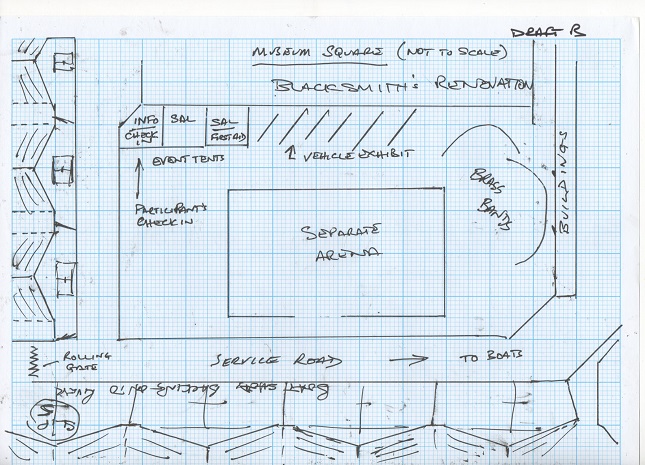 DRAFT B
MUSEUM SQUARE (NOT TO SCALE)
BLACKSMITH'S RENOVATION
INFO
CHECK
IN
SAL
SAL
FIRST AID
EVENT TENTS
VEHICLE EXHIBIT
PARTICIPANTS
CHECK IN
SEPARATE
ARENA
BRASS
BANDS
BUILDINGS
ROLLING
GATE
SERVICE ROAD
TO BOATS
BOAT SHEDS BACKING ONTO RIVER